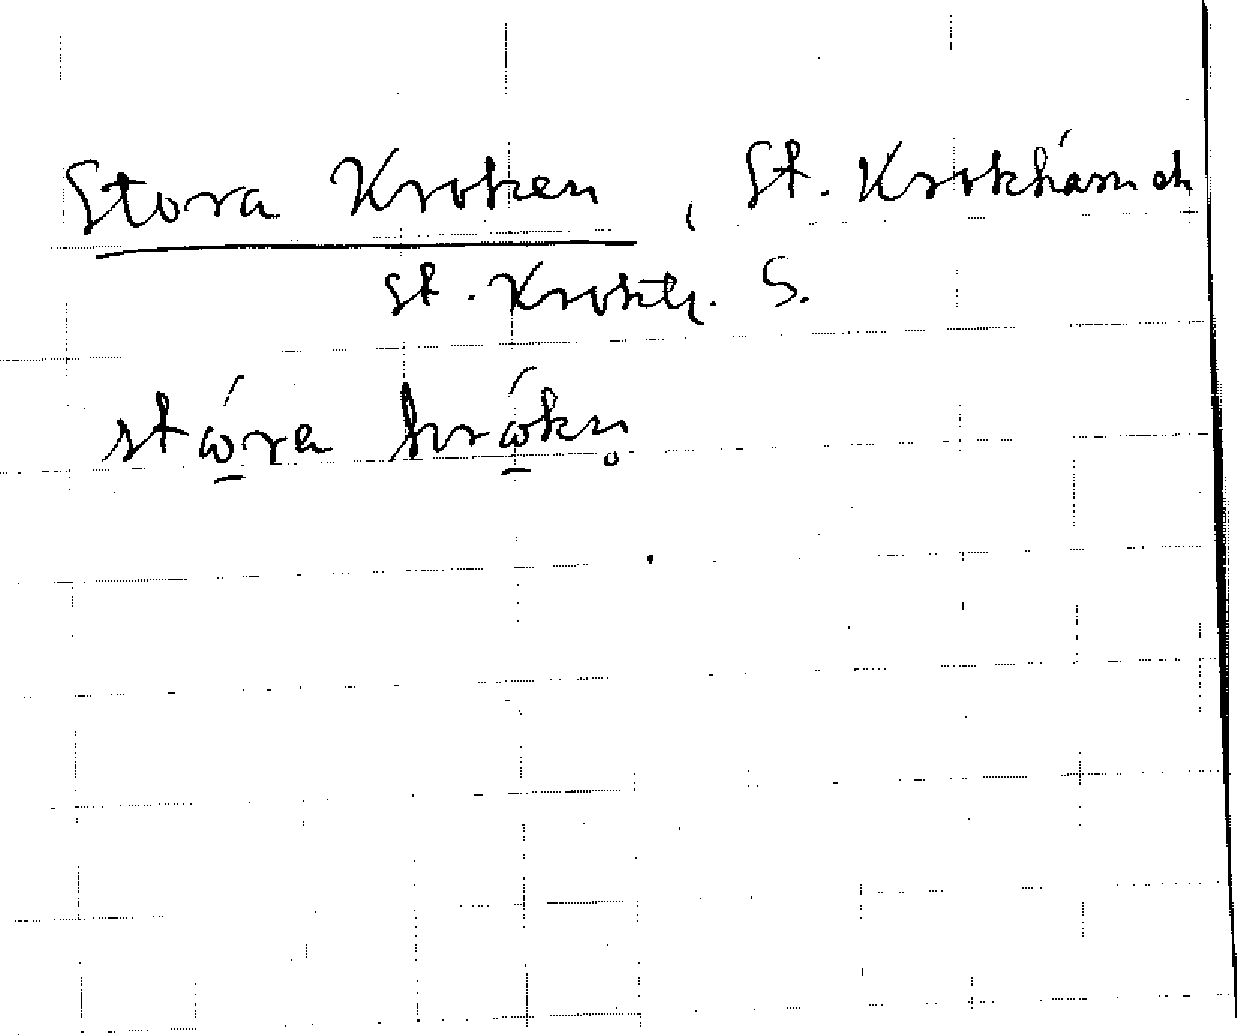 Stora Kroken, St. Krokhárn och
St. Kroktj. S.
stώ̱ra krώ̱kn̥